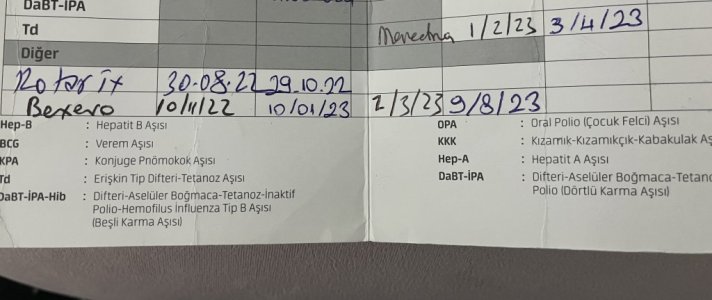 DaBT-İPA
Td
Menectra 1/2/23 3/4/23
Diğer
Rotarix 30.08.22 29.10.22
Bexero 10/11/22 10/01/23 2/3/23 9/8/23
Hep-B : Hepatit B Aşısı
BCG : Verem Aşısı
KPA : Konjuge Pnömokok Aşısı
Td : Erişkin Tip Difteri-Tetanoz Aşısı
DaBT-İPA-Hib : Difteri-Aselüler Boğmaca-Tetanoz-İnaktif
Polio-Hemofilus İnfluenza Tip B Aşısı
(Beşli Karma Aşısı)
OPA : Oral Polio (Çocuk Felci) Aşısı
KKK : Kızamık-Kızamıkçık-Kabakulak Aş
Hep-A : Hepatit A Aşısı
DaBT-İPA : Difteri-Aselüler Boğmaca-Tetano
Polio (Dörtlü Karma Aşısı)